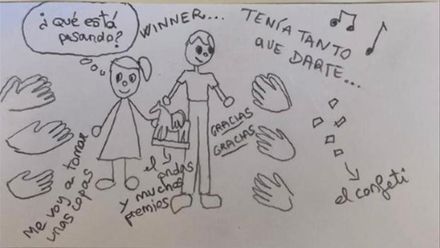 ¿qué está
pasando?
WINNER...
TENÍA TANTO
QUE DARTE...
GRACIAS
GRACIAS
Me voy a tomar
unas copas
el
y muchos
premios
el confeti